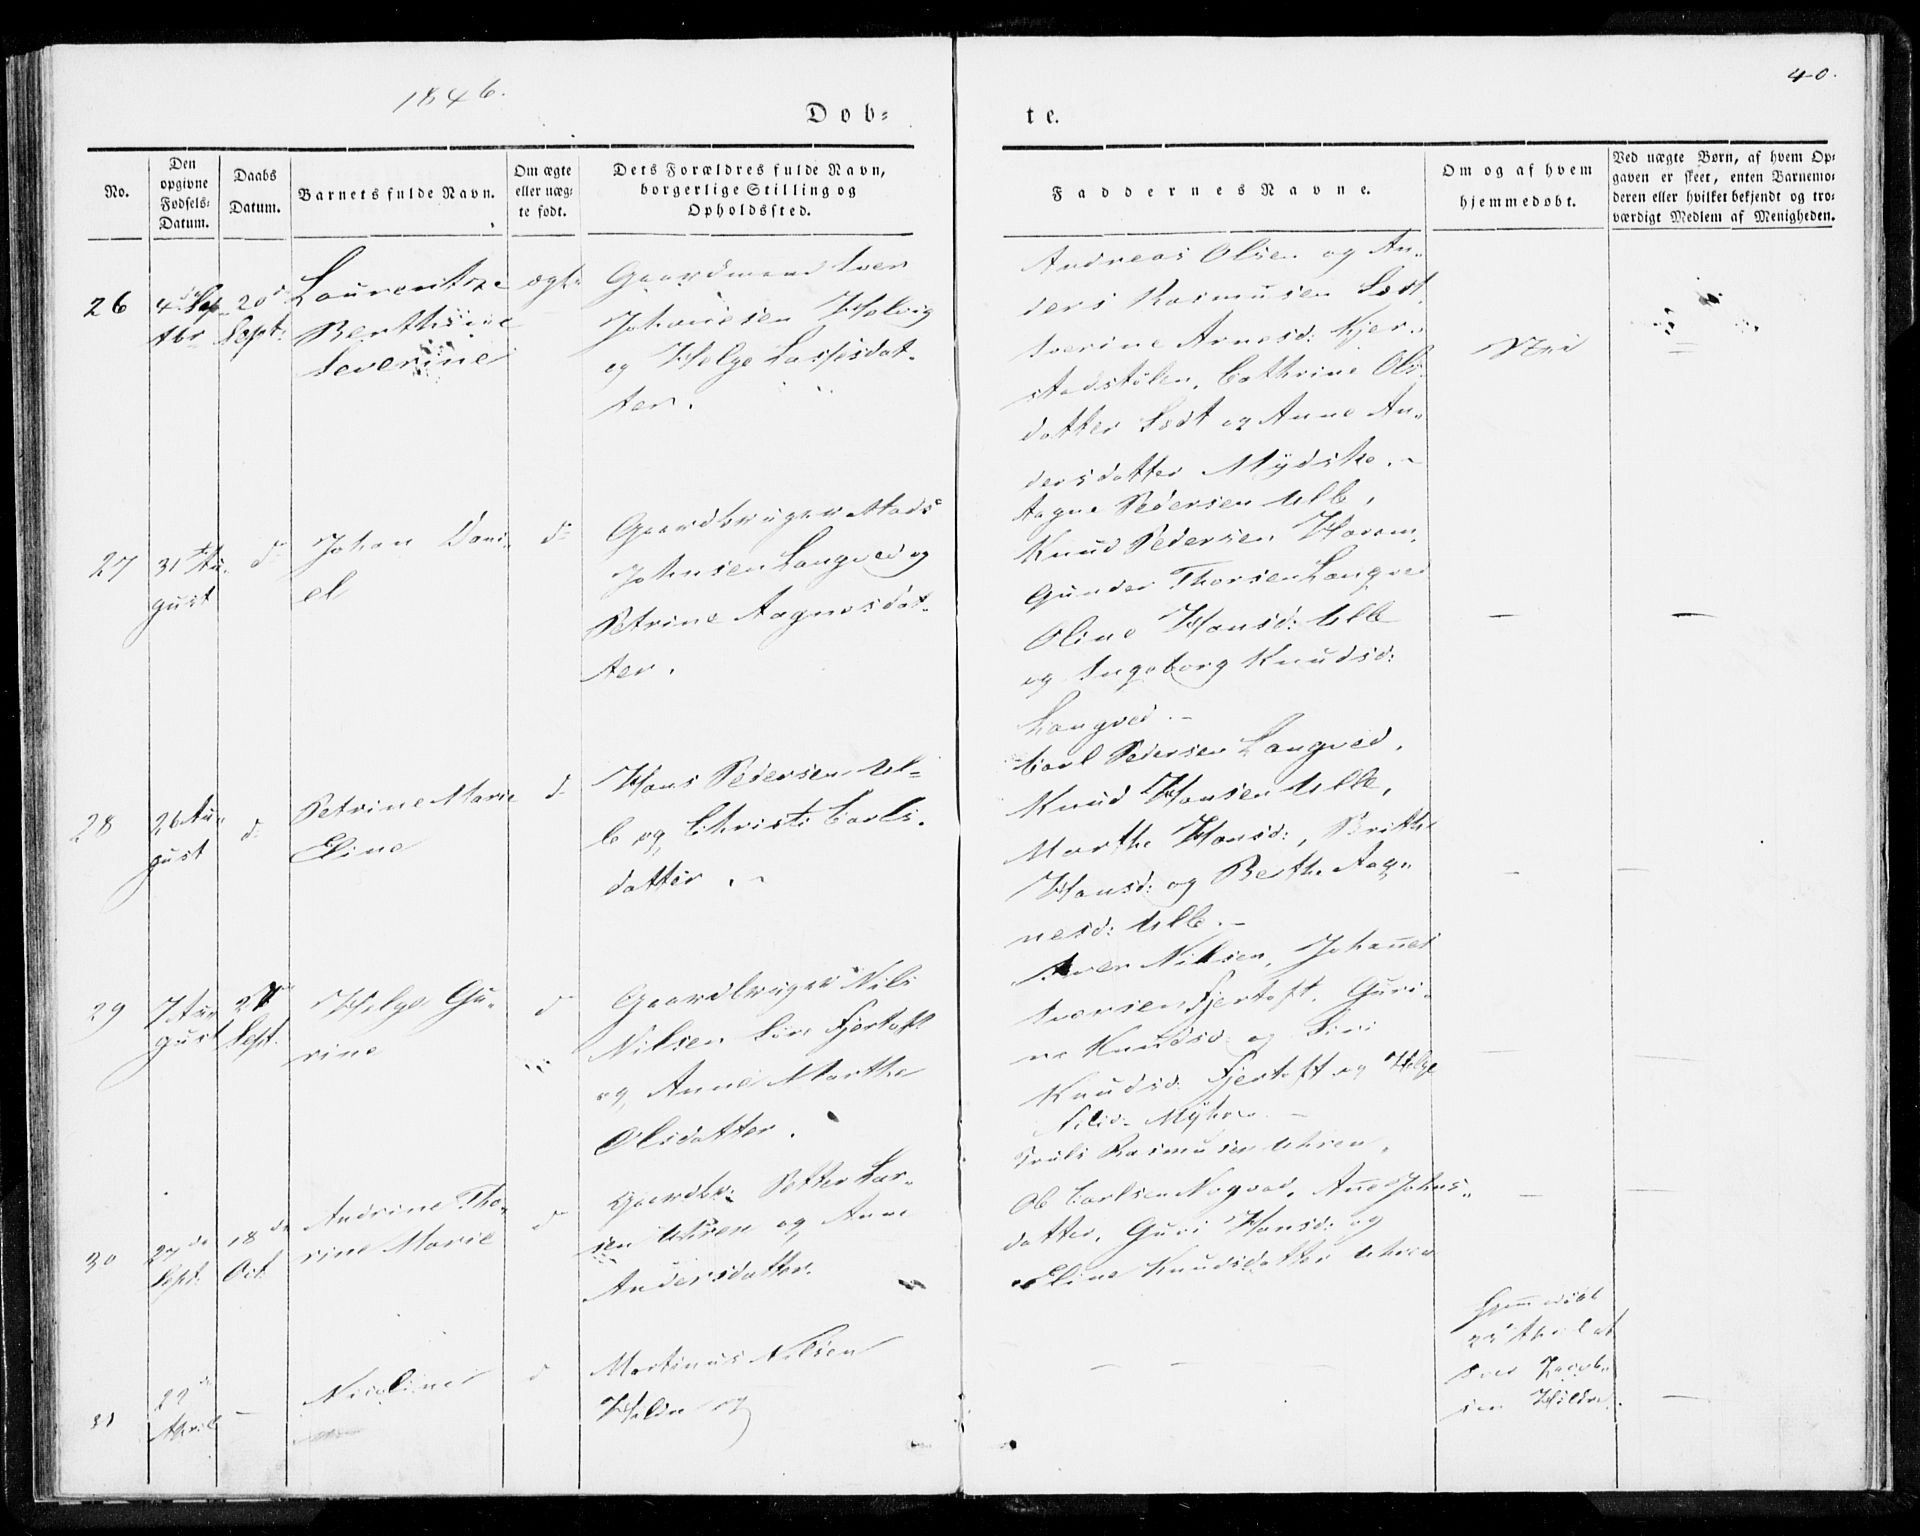 1846.
40.
Døb-
te.
No.
Den opgivne Fødsels-Datum.
Daabs Datum.
Barnets fulde Navn.
Om ægte eller uæg-te født.
Dets Forældres fulde Navn, borgerlige Stilling og Opholdssted.
Faddernes Navne.
Om og af hvem hjemmedøbt.
Ved uægte Børn, af hvem Op-gaven er skeet, enten Barnemo-deren eller hvilket bekjendt og tro-værdigt Medlem af Menigheden.
26
4de Sep-
tbr
20de
Sept:
Laurentze
Berthine
Severine
ægte
Gaardmand Iver
Johannesen Helvig
og Helge Lassesdat-
ter.
Andreas Olsen og An-
ders Rasmusen
Iverine Arnesd: Kjer-
stadstølen, Cathrine Ols-
datter og Anne An-
dersdatter Mÿdske. -
Nei
27
31te Au-
gust
do
Johan Dani-
el
do
Gaardbruger Mads
Johnsen Langved og
Petrine Aagnesdat-
ter.
Aagne Pedersen Ulle,
Knud Pedersen Haram,
Gunder Thorsen Langved
Oline Hansd: Ulle
og Ingeborg Knudsd:
Langved. -
28
26 Au-
gust
do
Petrine Marie
Eline
do
Hans Pedersen Ul-
le og Christi Carls-
datter. -
Carl Pedersen Langved,
Knud Hansen Ulle,
Marthe Hansd:, Brithe
Hansd: og Berthe Aag-
nesd: Ulle. -
29
7 Au-
gust
27
Sept.
Helge Gu-
rine
d
Gaardbruger Nils
Nilsen Fjertoft
og Anne Marthe
Olsdatter.
Iver Nilsen, Johannes
Iversen Fjertoft, Guri-
ne Knudsd: og Siri
Knudsd: Fjertoft og Helge
Nilsd: -
30
27de
Sept.
18de
Oct.
Andrine Tho-
rine Marie
d
Gaardbr: Petter Lar-
sen Uhren og Anne
Andersdatter.
Truls Rasmusen Uhren,
Ole Carlsen Nogvad, Ane Johns-
datter, Guri Hansd: og
Eline Knudsdatter Uhren
31
22de
April
-
Nicoline
d
Martinus Nilsen
og
- -
Hjemmedøbt
22de April af
Iver Jacob-
sen Hildre.